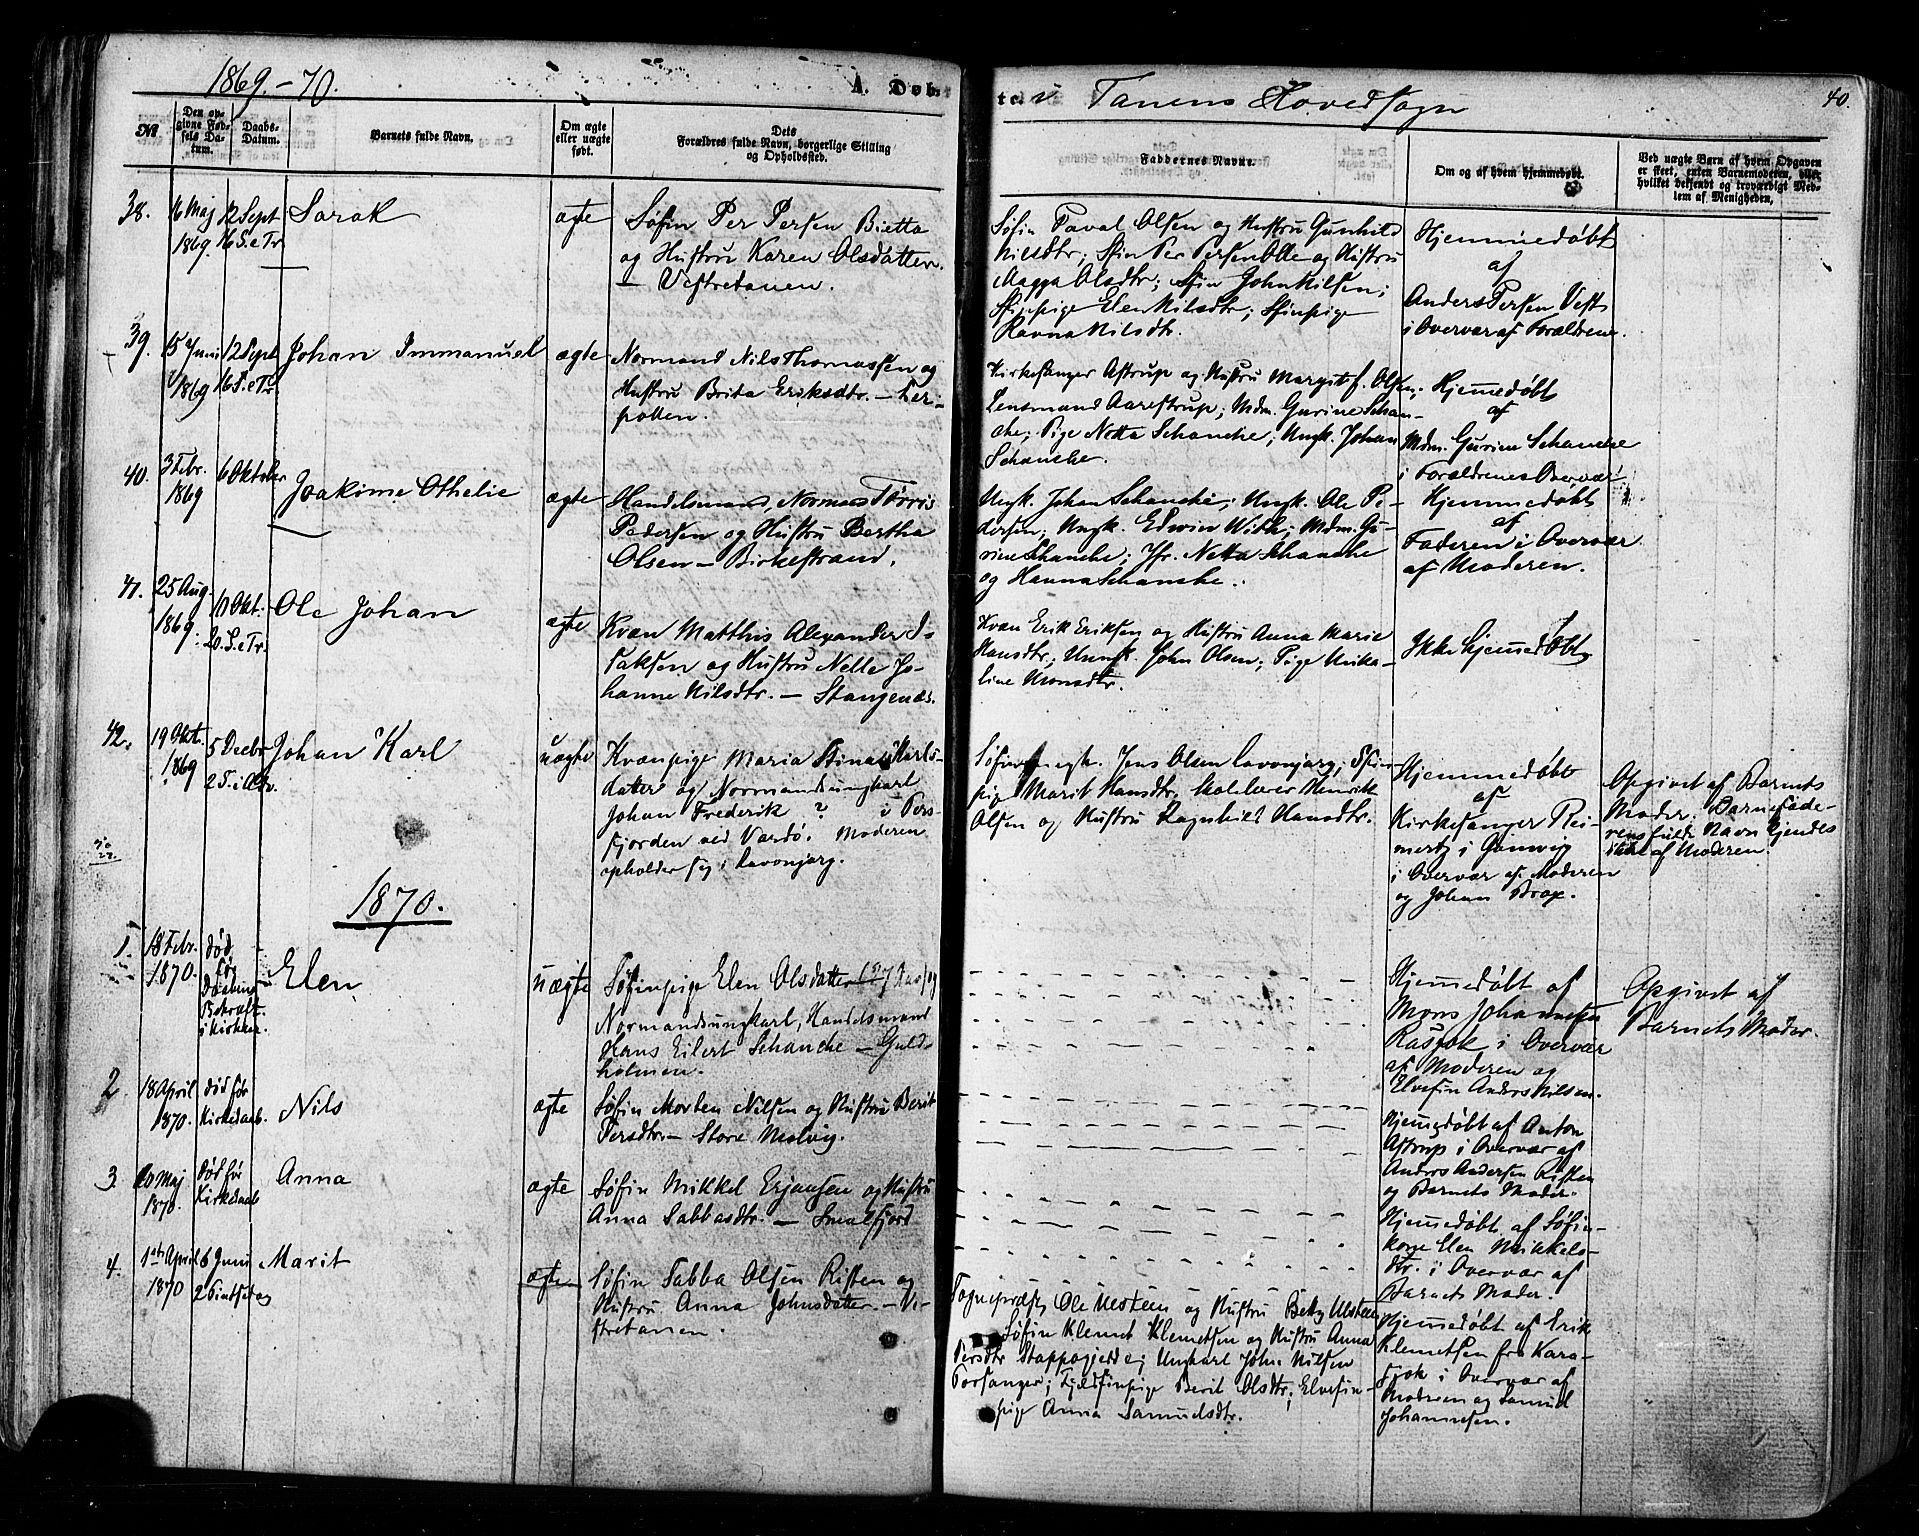 1869.-70.
A. Døbte i Tanens Hovedsogn
40.
No.
Den opgivne Fødsels Datum.
Daabs-Datum.
Barnets fulde Navn.
Om ægte eller uægte født.
Dets Forældres fulde Navn, borgerlige Stilling og Opholdssted.
Faddernes Navne.
Om og af hvem hjemmedøbt.
Ved uægte Børn af hvem Opgaven er skeet, enten Barnemoderen, eller hvilket bekjendt og troværdigt Medlem af Menigheden.
38.
16 Maj
1869.
12 Sept
16 S. e Tr
Sarak
ægte
Søfin Per Persen Bietta
og Hustru Karen Olsdatter.
– Vestretanen.
Søfin Paval Olsen og Hustru Gunhild
Nilsdtr; Sfin Per Persen Olle og Hustru
Magga Olsdtr; Sfin John Nilsen;
Sfinpige Elen Nilsdtr; Sfinpige
Ravna Nilsdtr.
Hjemmedøbt
af
Anders Persen Vest
i Overvær af Forældrene.
39.
15 Juni
1869
12 Sept
16 S. e Tr
Johan Immanuel
ægte
Normand Nils Thomassen og
Hustru Brita Eriksdtr. –
pollen.
Kirkesanger Astrup og Hustru Margit f. Olsen;
Lensmand Aarestrup; Mdm. Gurine Schan-
che; Pige Netta Schanche; Ungk. Johan
Schanche.
Hjemmedøbt
af
Mdm. Gurine Schanche
i Forældrenes Overvær
40.
3 Febr.
1869
6 Oktober
Joakime Othelie
ægte
Handelsmand, Normand Tørris
Pedersen og Hustru Bertha
Olsen – Birkestrand.
Ungk. Johan Schanche; Ungk. Ole Pe-
dersen; Ungk. Edwin With; Mdm. Gu-
rine Schanche; Jfr. Netta Schanche
og Hanna Schanche.
Hjemmedøbt
af
Faderen i Overvær
af Moderen.
41.
25 Aug.
1869.
10 Okt.
20. S. e Tr.
Ole Johan
ægte
Kvæn Matthis Alexander I-
saksen og Hustru Nelle Jo-
hanne Nilsdtr. – Stangenæs.
Kvæn Erik Eriksen og Hustru Anna Marie
Hansdtr; Ungk. John Olsen; Pige Unika-
line Monsdtr.
Ikke Hjemmedøbt
42.
19 Okt.
1869
5 Decbr
2 S. i Adv.
Johan Karl
uægte
Kvænpige Maria Stina Karls-
datter og Normandsungkarl
Johan Frederik ? i Pers-
fjorden ved Vardø. Moderen
opholder sig i Lavonjarg.
Søfinungk. Jens Olsen Lavonjarg, Sfin-
pige Marit Hansdtr. Skolelærer Henrik
Olsen og Hustru Ragnhild Hansdtr.
Hjemmedøbt
af
Kirkesanger Rei-
nertz i Gamvig
i Overvær af Moderen
og Johan Brox.
Opgivet af Barnets
Moder. Barnefade-
rens fulde Navn kjendes
ikke af Moderen.
1870.
1.
18 Febr.
1870.
død
før
Daabens
Bekræft.
i Kirken.
Elen
uægte
Søfinpige Elen Olsdatter (27 Aar) og
Normandsungkarl, Handelsmand
Hans Eilert Schanche – Guld-
holmen.
Hjemmedøbt af
Mons Johannesen
Rasjok i Overvær
af Moderen og
Elvefin Anders Nilsen.
Opgivet af
Barnets Moder.
2
18 April
1870.
død før
Kirkedaab.
Nils
ægte
Søfin Morten Nilsen og Hustru Berit
Persdtr. – Store Molvig.
Hjemmedøbt af Anton
Astrup i Overvær af
Anders Andersen Risten
og Barnets Moder.
3.
20 Maj
1870.
Død før
Kirkedaab
Anna
ægte
Søfin Mikkel Erjansen og Hustru
Anna Sabbasdtr. – Smalfjord
Hjemmedøbt af Søfin-
kone Elen Mikkels-
dtr. i Overvær af
Barnets Moder.
4.
1ste April
1870
6 Juni
2 Pintsedag
Marit
ægte
Søfin Sabba Olsen Risten og
Hustru Anna Johnsdatter. – Ve-
stretanen.
Sognepræst Ole Mosteen og Hustru Betzy Mosteen
Søfin Klemet Klemetsen og Hustru Anna
Persdtr Stappogjedde; Ungkarl John Nilsen
Porsanger; Fjeldfinpige Berit Olsdtr; Elvefin-
pige Anna Samuelsdtr.
Hjemmedøbt af Erik
Klemetsen fra Kara-
sjok i Overvær af
Moderen og Samuel
Johannesen.